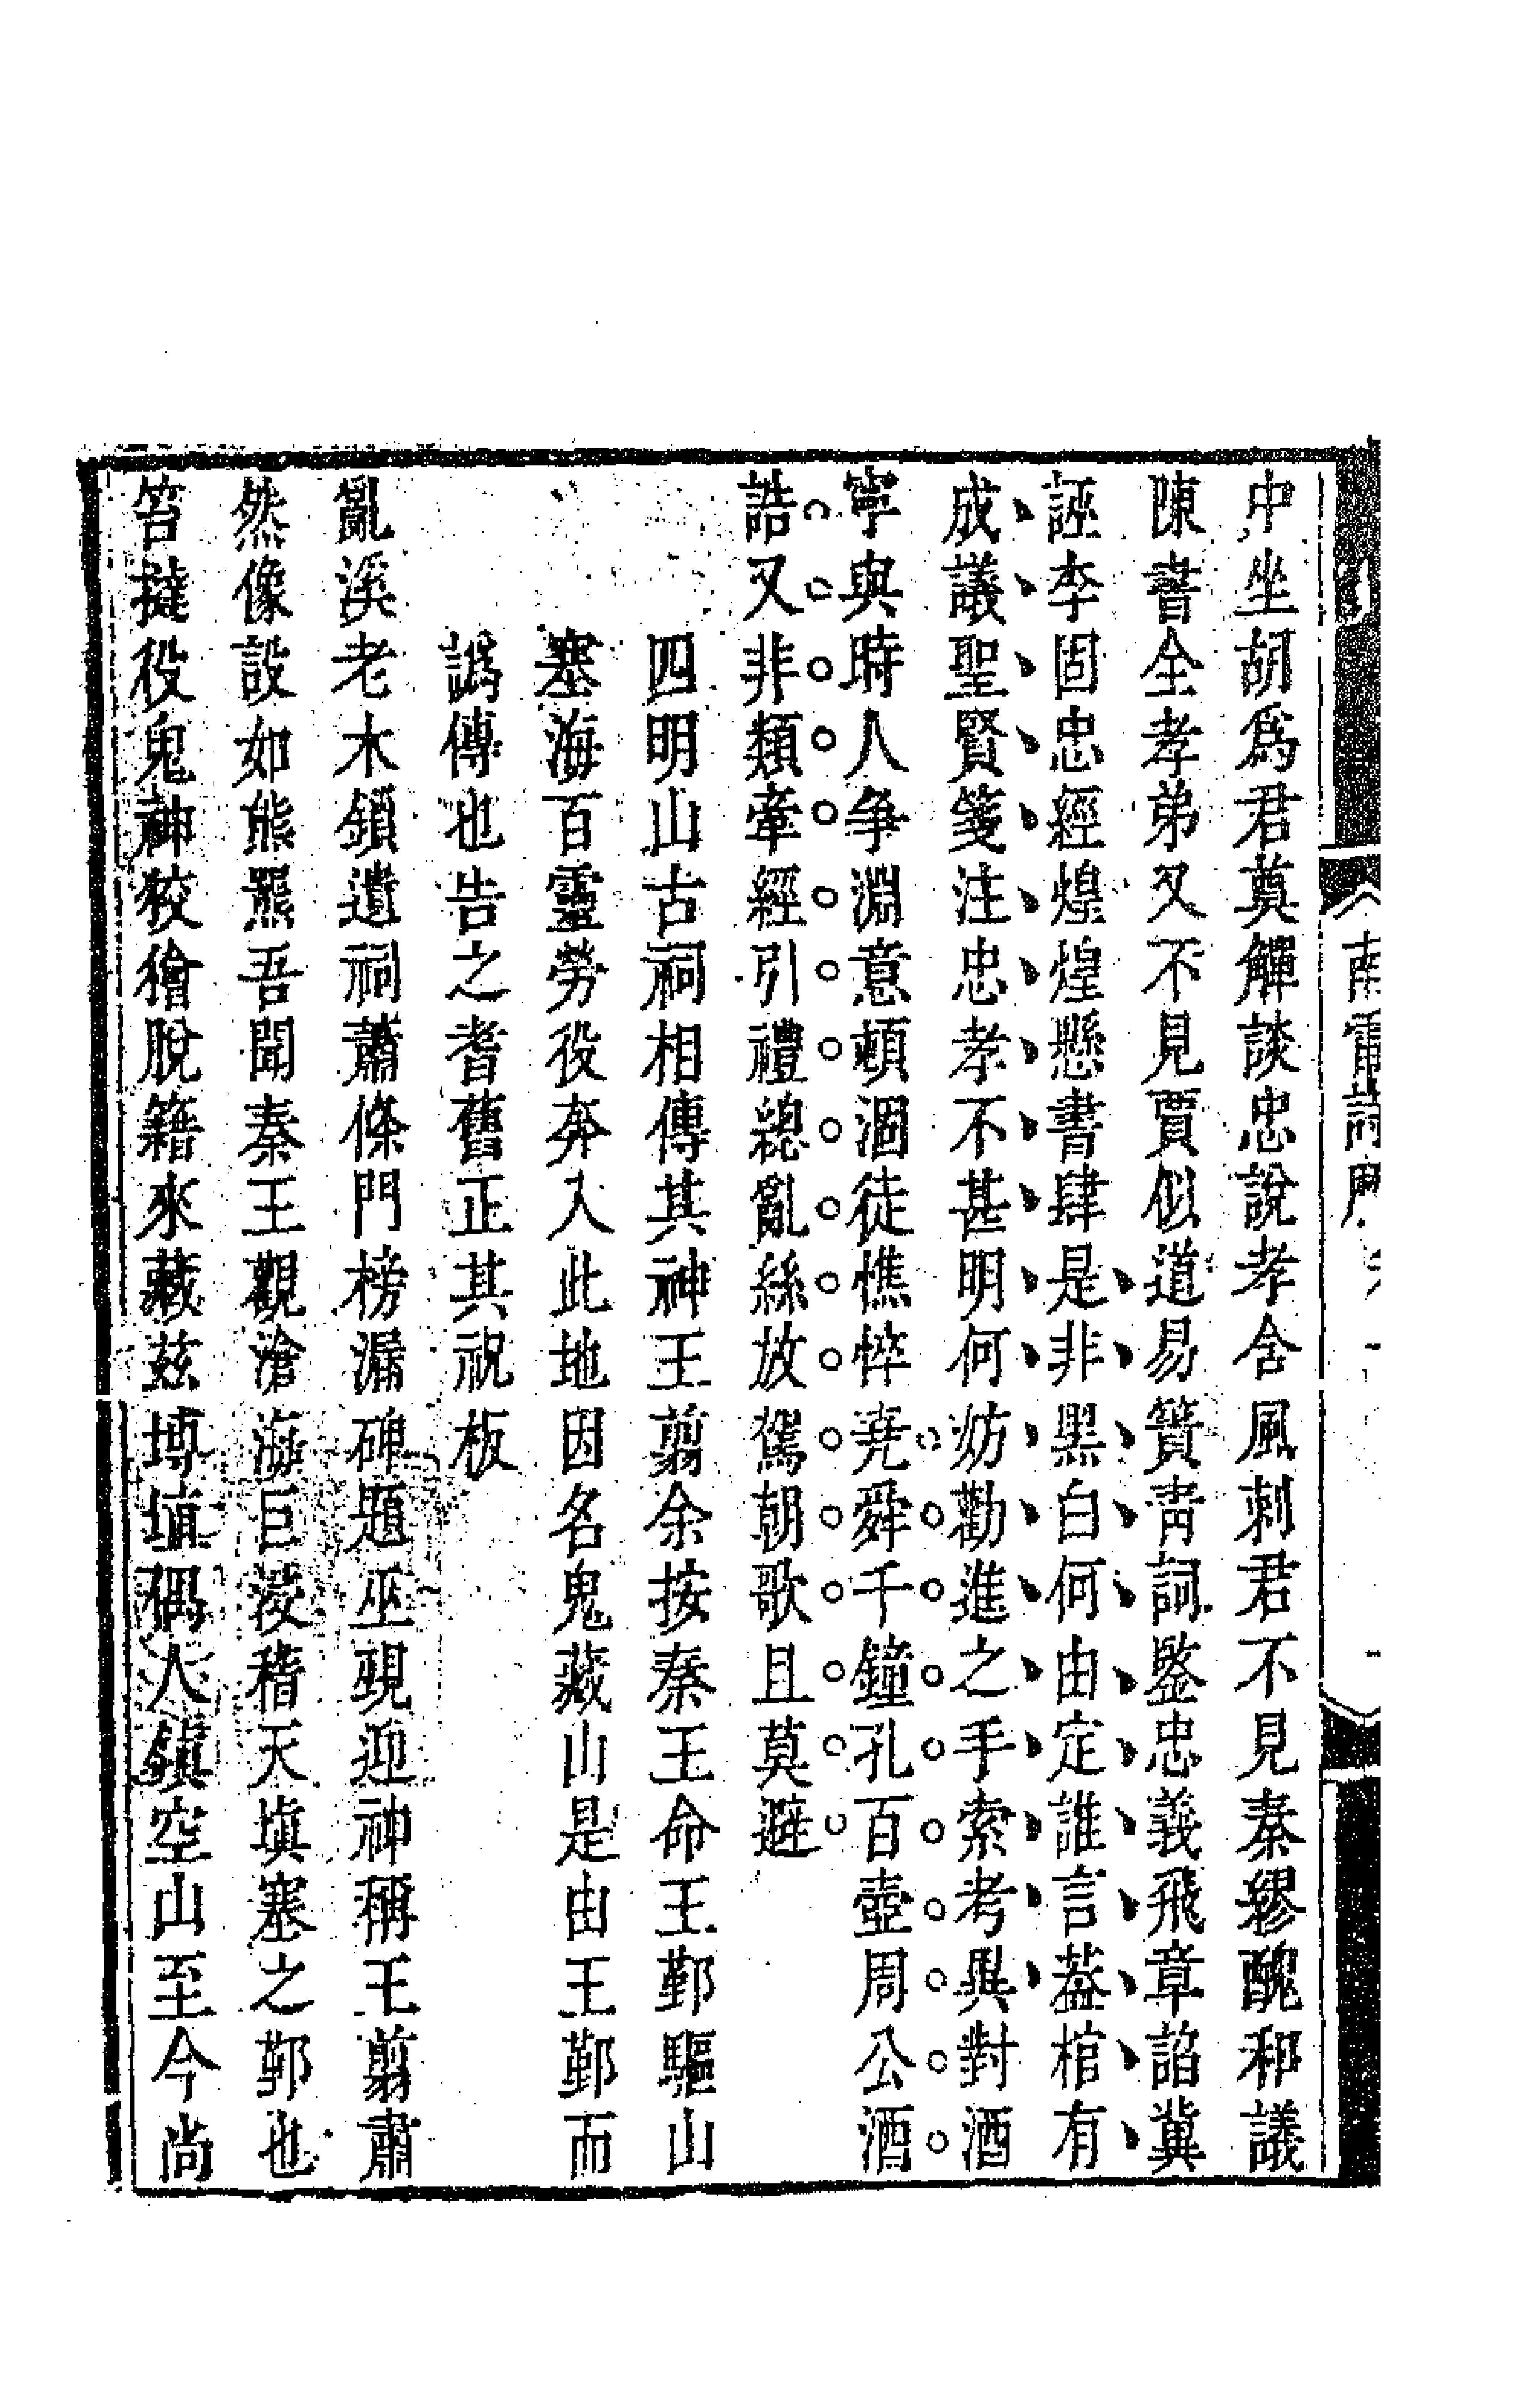 中坐胡爲君莫觶談忠說孝含風刺君不見秦繆醜和議
陳書全孝弟又不見賈似道易簀靑詞鑒忠義飛章諂冀
誣李固忠經煌煌懸書肆是非黑白何由定誰言葢棺有
成議聖賢箋注忠孝不甚明何妨勸進之手索考異對酒
寧與時人争淵意頓涸徒憔悴尭舜千鐘孔百壺周公酒
誥又非類牽經引禮總亂絲放駕朝歌且莫避
四明山古祠相傳其神王翦余按秦王命王鄞驅山
塞海百靈勞役奔入此地因名鬼藏山是由王鄞而
譌傳也告之耆舊正其祝板
亂溪老木鎖遺祠蕭條門榜漏碑題巫覡迎神稱王翦肅
然像設如熊羆吾聞秦王觀滄海巨浸稽天塡塞之鄞也
笞撻役鬼神狡獪脫籍來藏茲塼埴偶人鎮空山至今尚
南雷詩曆